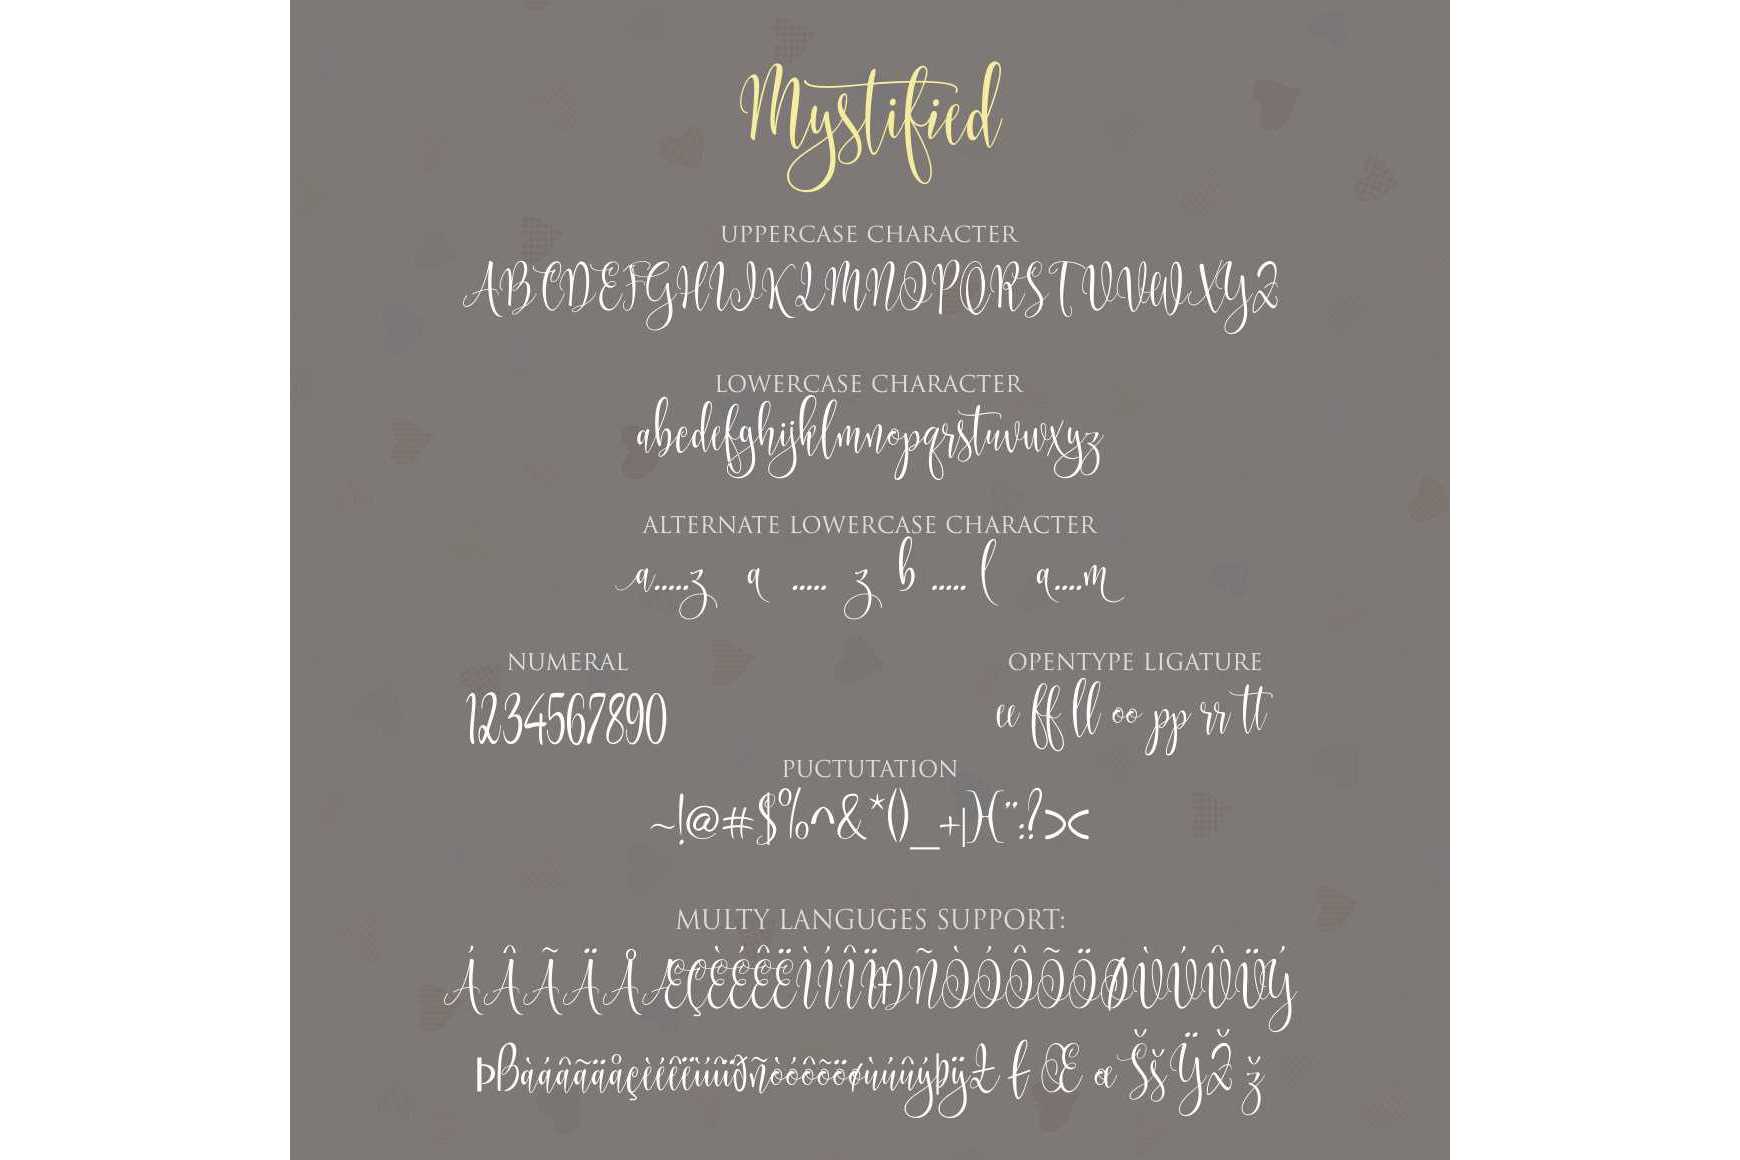 Mystified
UPPERCASE CHARACTER
ABCDEFGHIJKLMNOPQRSTUVWXYZ
LOWERCASE CHARACTER
abcdefghijklmnopqrstuvwxyz
ALTERNATE LOWERCASE CHARACTER
a.....z a ..... z b ..... l a....m
NUMERAL
1234567890
OPENTYPE LIGATURE
ee ff ll oo pp rr tt
PUCTUTATION
~!@#$%^&*()_+|}{":?><
MULTY LANGUGES SUPPORT:
ÁÂÃÄÅÆÇÈÉÊËÌÍÎÏÐÑÒÓÔÕÖØÙÚÛÜÝ